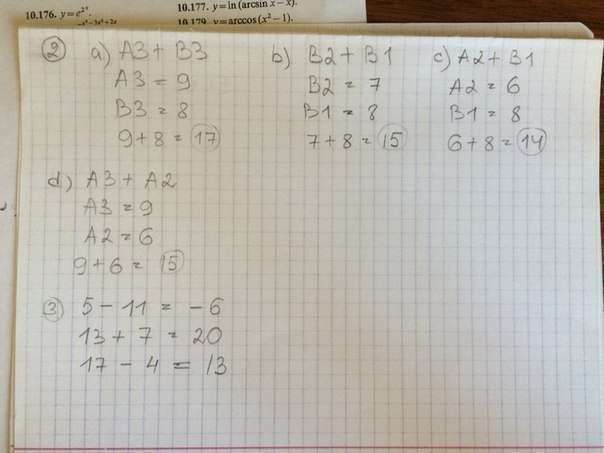 10.176. y=e^{2^x}.
10.177. y=ln(arcsin x−x).
10.179. y=arccos(x²−1).
② a) A3 + B3
A3 = 9
B3 = 8
9+8 = 17
b) B2 + B1
B2 = 7
B1 = 8
7+8 = 15
c) A2 + B1
A2 = 6
B1 = 8
6+8 = 14
d) A3 + A2
A3 = 9
A2 = 6
9+6 = 15
③ 5 − 11 = −6
13 + 7 = 20
17 − 4 = 13